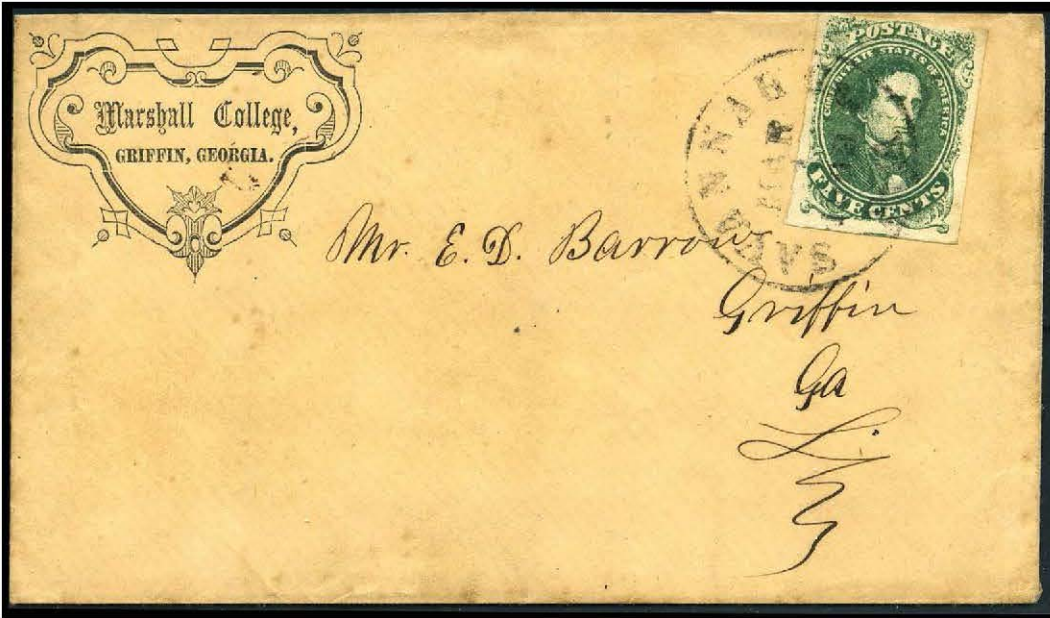 Marshall College,
GRIFFIN, GEORGIA.
POSTAGE
CONFEDERATE STATES OF AMERICA
FIVE CENTS
SAVANNAH
MAR
Mr. E. D. Barrow
Griffin
Ga